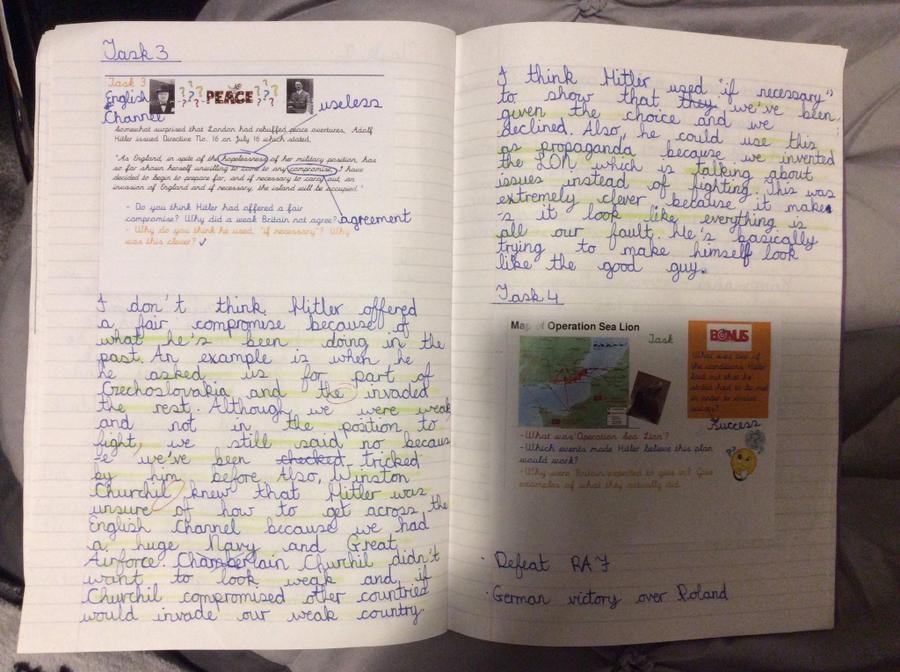 Task 3
Task 3
English
Channel
PEACE
useless
Somewhat surprised that London had rebuffed peace overtures, Adolf
Hitler issued Directive No. 16 on July 16 which stated,
"As England, in spite of the hopelessness of her military position, has
so far shown herself unwilling to come to any compromise, I have
decided to begin to prepare for, and if necessary to carry out, an
invasion of England and if necessary, the island will be occupied."
- Do you think Hitler had offered a fair
compromise? Why did a weak Britain not agree?
agreement
- Why do you think he used, "if necessary"? Why
was this clever?
I don't think Hitler offered
a fair compromise because of
what he's been doing in the
past. An example is when he
he asked us for part of
Czechoslovakia and the invaded
the rest. Although we were weak
and not in the position to
fight, we still said no becaus
e we've been checked tricked
by him before. Also, Winston
Churchil knew that Hitler was
unsure of how to get across the
English Channel because we had
a huge Navy and Great
Airforce. Chamberlain Churchil didn't
want to look weak and if
Churchil compromised other countries
would invade our weak country.
I think Hitler used "if necessary"
to show that they we've been
given the choice and we
declined. Also, he could use this
as propaganda because we invented
the LON which is talking about
issues instead of fighting. This was
extremely clever because it make
-s it look like everything is
all our fault. He's basically
trying to make himself look
like the good guy.
Task 4
Map of Operation Sea Lion
Task
BONUS
What were two of
the conditions Hitler
laid out that he
stated had to be met
in order to ensure
success?
Success
- What was Operation Sea Lion?
- Which events made Hitler believe this plan
would work?
- Why were Britain expected to give in? Give
examples of what they actually did.
· Defeat RAF
· German victory over Poland